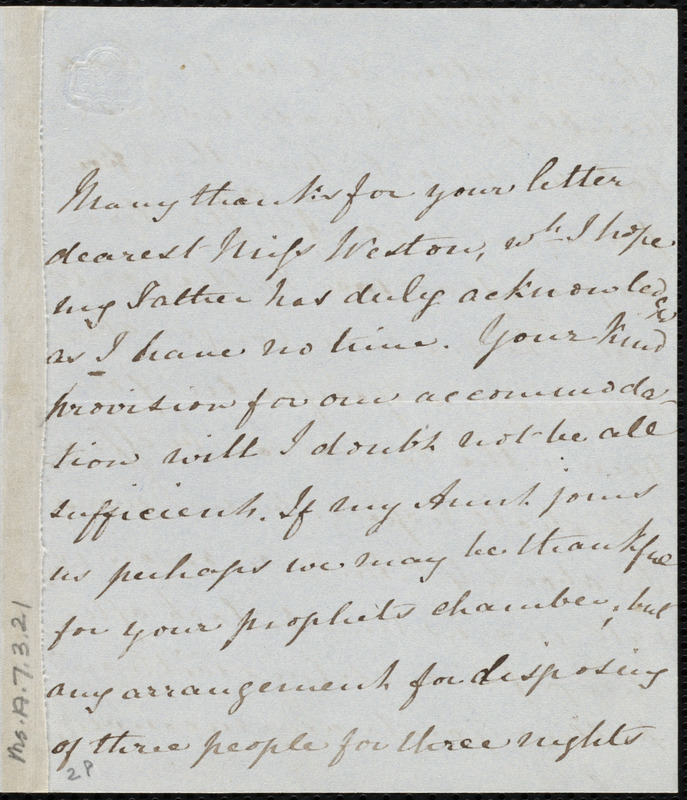 Many thanks for your letter
dearest Miss Weston, wh I hope
my Father has duly acknowledged
as I have no time. Your kind
provision for our accommoda-
tion will I doubt not be all
sufficient. If my Aunt joins
us perhaps we may be thankful
for your prophets chamber, but
any arrangement for disposing
of three people for three nights
2P
Ms.A.7.3.21